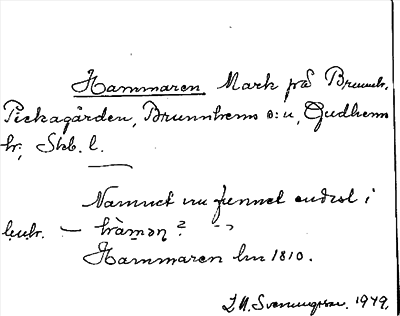 Hammaren Mark på Brunnh.
Pickagården, Brunnhems s:n, Gudhems
hr, Skb. l.
Namnet nu funnet endast i
hàmạṇ ?
Hammaren Lm 1810.
Svenungsson. 1949.